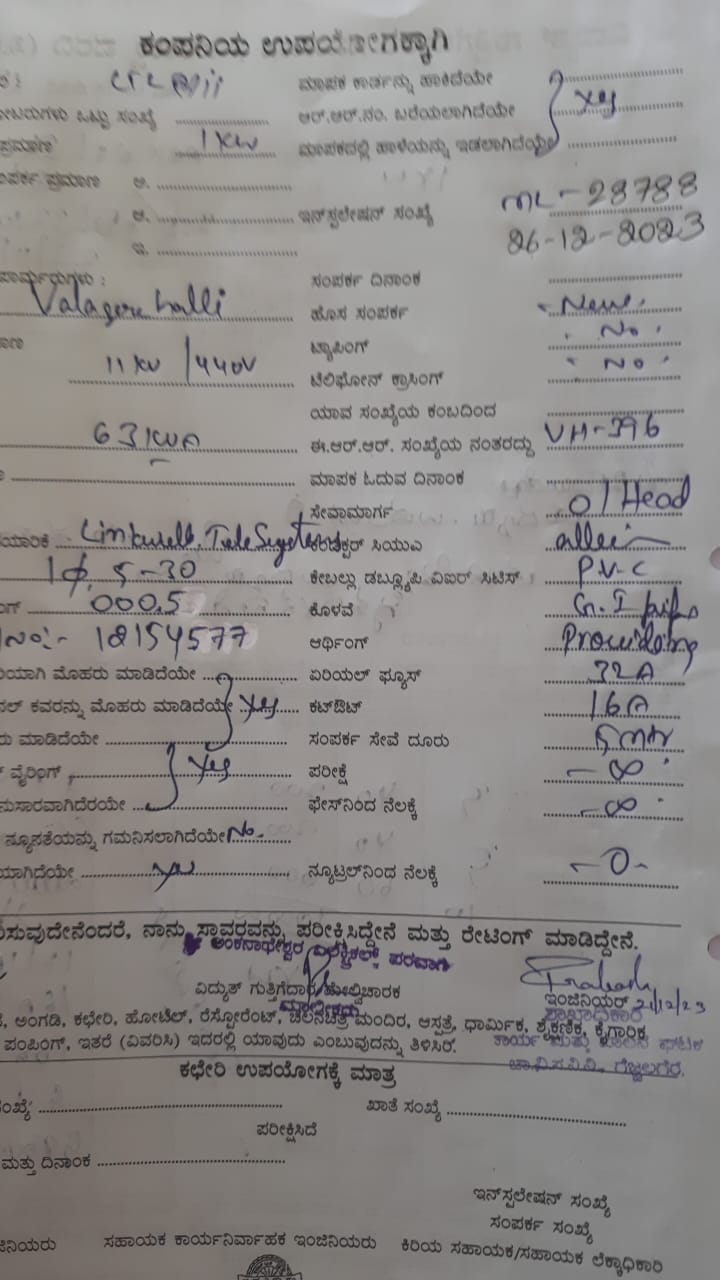 ಕಂಪನಿಯ ಉಪಯೋಗಕ್ಕಾಗಿ
ಮಾಪಕ ಕಾರ್ಡನ್ನು ಹಾಕಿದೆಯೇ
ಒಟ್ಟು ಸಂಖ್ಯೆ ಆರ್.ಆರ್.ನಂ. ಬರೆಯಲಾಗಿದೆಯೇ Yes
ಪ್ರಮಾಣ 1 KW ಮಾಪಕದಲ್ಲಿ ಹಾಳೆಯನ್ನು ಇಡಲಾಗಿದೆಯೇ
ಪ್ರಮಾಣ ಅ.
ಆ. ಇನ್‌ಸ್ಟಲೇಷನ್ ಸಂಖ್ಯೆ ML-28788
ಇ. 26-12-2023
ಸಂಪರ್ಕ ದಿನಾಂಕ
Valagerehalli ಹೊಸ ಸಂಪರ್ಕ - New.
ಟ್ಯಾಪಿಂಗ್ No
11 KV / 440V ಟೆಲಿಫೋನ್ ಕ್ರಾಸಿಂಗ್ No
ಯಾವ ಸಂಖ್ಯೆಯ ಕಂಬದಿಂದ
63 KVA ಈ.ಆರ್.ಆರ್. ಸಂಖ್ಯೆಯ ನಂತರದ್ದು VH-396
ಮಾಪಕ ಓದುವ ದಿನಾಂಕ
ಸೇವಾಮಾರ್ಗ O/Head
Linkwell Tele Systems ಸಿಯುಎ
1φ, 5-30 ಕೇಬಲ್ಲು ಡಬ್ಲ್ಯೂಪಿ ವಿಐಆರ್ ಸಿಟಿಸ್ : P.V.C
000.5 ಕೊಳವೆ G.I pipe
No:- 18154577 ಅರ್ಥಿಂಗ್ Providing
ಮೊಹರು ಮಾಡಿದೆಯೇ ಏರಿಯಲ್ ಫ್ಯೂಸ್ 32A
ಕವರನ್ನು ಮೊಹರು ಮಾಡಿದೆಯೇ Yes ಕಟ್‌ಔಟ್ 16A
ಮಾಡಿದೆಯೇ ಸಂಪರ್ಕ ಸೇವೆ ದೂರು 5 mtr
ವೈರಿಂಗ್ Yes ಪರೀಕ್ಷೆ - ∞
ಫೇಸ್‌ನಿಂದ ನೆಲಕ್ಕೆ - ∞
ನ್ಯೂನತೆಯನ್ನು ಗಮನಿಸಲಾಗಿದೆಯೇ No-
Yes ನ್ಯೂಟ್ರಲ್‌ನಿಂದ ನೆಲಕ್ಕೆ -0-
ನಾನು ಸ್ಥಾವರವನ್ನು ಪರೀಕ್ಷಿಸಿದ್ದೇನೆ ಮತ್ತು ರೇಟಿಂಗ್ ಮಾಡಿದ್ದೇನೆ.
ಅಂಕನಾಥೇಶ್ವರ ಎಲೆಕ್ಟ್ರಿಕಲ್ಸ್ ಪರವಾಗಿ
ವಿದ್ಯುತ್ ಗುತ್ತಿಗೆದಾರ/ಮೇಲ್ವಿಚಾರಕ ಇಂಜಿನಿಯರ್ 21/12/23
ಮಾಲೀಕರು ಶಾಖಾಧಿಕಾರಿ
ಅಂಗಡಿ, ಕಛೇರಿ, ಹೋಟೆಲ್, ರೆಸ್ಟೋರೆಂಟ್, ಚಲನಚಿತ್ರ ಮಂದಿರ, ಆಸ್ಪತ್ರೆ, ಧಾರ್ಮಿಕ, ಶೈಕ್ಷಣಿಕ, ಕೈಗಾರಿಕ
ಪಂಪಿಂಗ್, ಇತರೆ (ವಿವರಿಸಿ) ಇದರಲ್ಲಿ ಯಾವುದು ಎಂಬುವುದನ್ನು ತಿಳಿಸಿರಿ. ಕಾರ್ಯ ಮತ್ತು ಪಾಲನೆ ಘಟಕ
ಚಾ.ವಿ.ಸ.ನಿ.ನಿ., ಗೆಜ್ಜಲಗೆರೆ.
ಕಛೇರಿ ಉಪಯೋಗಕ್ಕೆ ಮಾತ್ರ
ಖಾತೆ ಸಂಖ್ಯೆ
ಪರೀಕ್ಷಿಸಿದೆ
ಮತ್ತು ದಿನಾಂಕ
ಇನ್‌ಸ್ಟಲೇಷನ್ ಸಂಖ್ಯೆ
ಸಂಪರ್ಕ ಸಂಖ್ಯೆ
ಸಹಾಯಕ ಕಾರ್ಯನಿರ್ವಾಹಕ ಇಂಜಿನಿಯರು ಕಿರಿಯ ಸಹಾಯಕ/ಸಹಾಯಕ ಲೆಕ್ಕಾಧಿಕಾರಿ